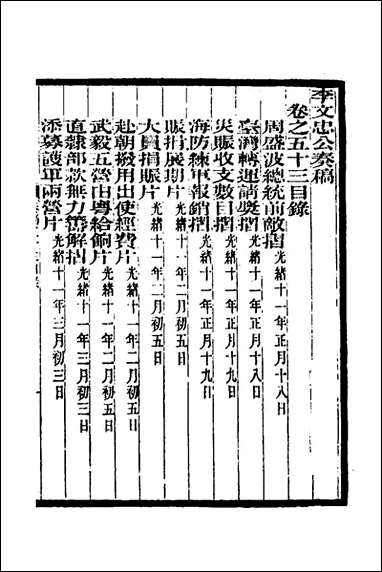 李文忠公奏稿
卷之五十三目錄
周盛波總統前敵摺 光緒十一年正月十八日
臺灣轉運請獎摺 光緒十一年正月十八日
災賑收支數目摺 光緒十一年正月十九日
海防練軍報銷摺 光緒十一年正月十九日
賑捐展期片
大員捐賑片 光緒十一年二月初五日
赴朝撥用出使經費片 光緒十一年二月初五日
武毅五營由粵給餉片 光緒十一年二月初五日
直隸部款無力籌解摺 光緒十一年三月初三日
添募護軍兩營片 光緒十一年三月初三日